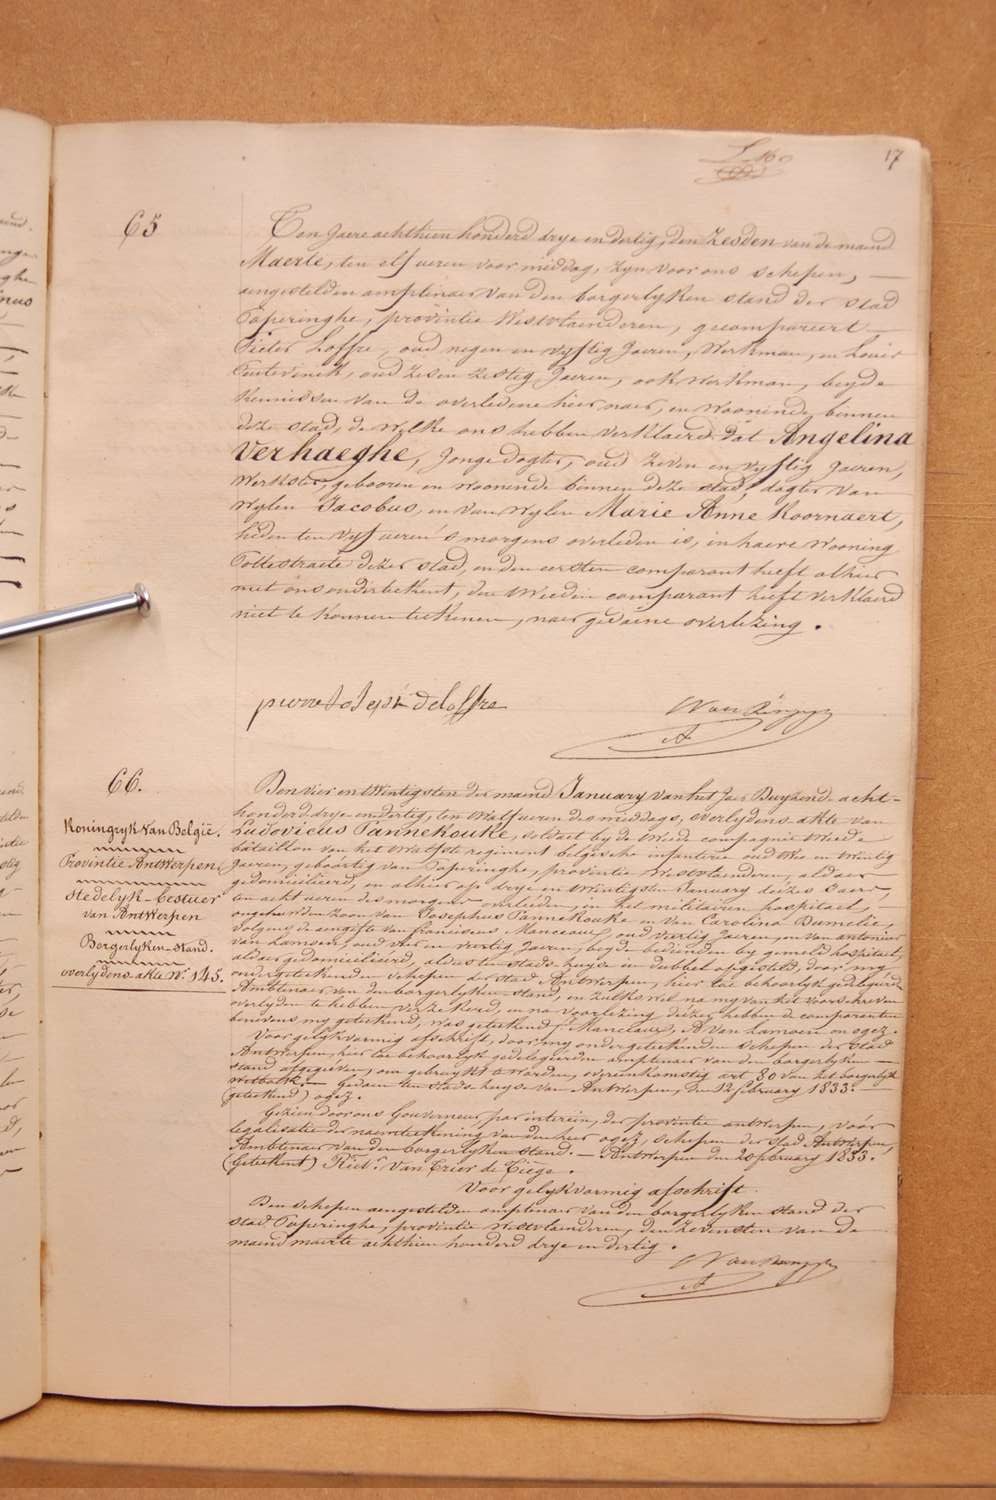 17
65
Ten Jaere achthien honderd drye en dertig, den zesden van de maend
Maerte, ten elf ueren voor middag, zyn voor ons schepen,
aengestelden amptenaer van den borgerlyken stand der stad
Poperinghe, provintie Westvlaenderen, gecompareert
Pieter Loffre, oud negen en vyftig Jaeren, Werkman, en Louis
oud zesen zestig Jaeren, ook werkman, beyde
kennissen van de overledene hier naer, en woonende binnen
deze stad, de welke ons hebben verklaerd dat Angelina
Verhaeghe, Jonge dogter, oud zeven en vyftig Jaeren,
Werkster, gebooren en woonende binnen deze stad, dogter van
wylen Jacobus, en van wylen Marie Anne Koornaert,
heden ten vyf ueren s'morgens overleden is, in haere wooning
straete dezer stad, en den eersten comparant heeft alhier
met ons onderteekent, den tweeden comparant heeft verklaerd
niet te konnen teekenen, naer gedaene overlezing.
pierre Joseph deloffre
66.
Koningryk van Belgïe.
Provintie Antwerpen.
Stedelyk-Bestuer
van Antwerpen
Borgerlyken-stand.
overlydens akte Nr. 145.
Den vier en twintigsten der maend January van het Jaer Duyzende acht-
honderd drye en dertig, ten twalf ueren des middags, overlydens akte van
Ludovicus Pannekouke, soldaet by de tweede compagnie tweede
bataillon van het twalfste regiment belgische infanterie oud twee en twintig
Jaeren, geboortig van Poperinghe, provintie Westvlaenderen, aldaer
gedomicilieerd, en alhier op drye en twintigsten January dezes Jaers,
ten acht ueren des morgens overleden, in het militairen hospitael,
ongehuwden zoon van Josephus Pannekouke en van Carolina Dumelie,
volgens de aengifte van franciscus Manceaux, oud veertig Jaeren, en van antonius
van Lamoen, oud vier en veertig Jaeren, beyde bedienden by gemeld hospitael,
aldaer gedomicilieerd, aldus ten stads huyse in dubbel opgesteld, door my
ondergeteekenden schepen der stad Antwerpen, hier toe behoorlyk gedelegeerde
Ambtenaer van den borgerlyken stand, en zulks wel na my van het voorschreven
overlyden te hebben verzekerd, en na voorlezing dezer hebben de comparanten
benevens my geteekend, was geteekend, F. Manceaux, A Van Lamoen en ogez.
Voor gelykvormig afschrift, door my ondergeteekenden schepen der Stad
Antwerpen, hier toe behoorlyk gedelegeerden amptenaer van den borgerlyken
stand afgegeven, om gebruykt te worden, overeenkomstig art 80 van het borgerlyk
wetboek.— Gedaen ten stads huyse van Antwerpen, den 12 february 1833.
(geteekend) ogez.
Gezien door ons Gouverneur par interim, der provintie antwerpen, voor
legalisatie der naemteekening van den heer ogez, schepen der stad Antwerpen,
Ambtenaer van den borgerlyken stand.— Antwerpen den 20 february 1833.
(Geteekent) Ridr. Van Erier de Tiége.
Voor gelykvormig afschrift.
Den schepen aengestelden amptenaer van den borgerlyken stand der
stad Poperinghe, provintie Westvlaenderen, den zevensten van de
maend maerte achthien honderd drye en dertig.